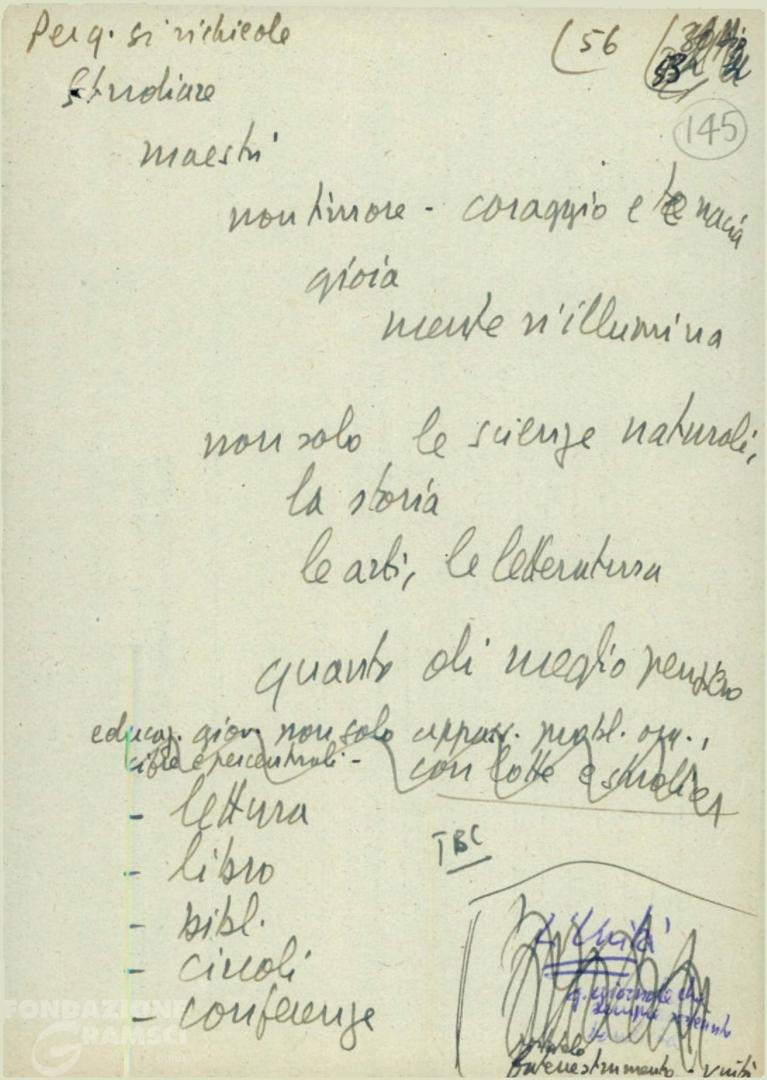 Per q. si richiede
(56
Studiare
145
maestri
non timore - coraggio e tenacia
gioia
mente s'illumina
non solo le scienze naturali,
la storia
le arti, le letteratura
quanto di meglio pensiero
educaz. giov. non solo appass. probl. org.,
cifre e percentuali -
con lotte e studio
- lettura
TBC
- libro
- bibl.
- circoli
- conferenze
L'Unità
q. giornale che
sempre
strumento - unità
FONDAZIONE
GRAMSCI